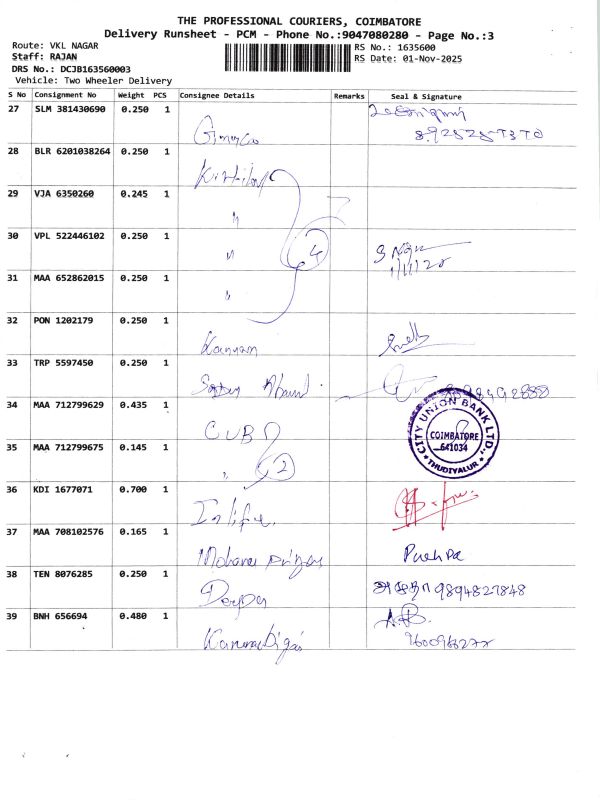 THE PROFESSIONAL COURIERS, COIMBATORE
Delivery Runsheet - PCM - Phone No.:9047080280 - Page No.:3
Route: VKL NAGAR
RS No.: 1635600
Staff: RAJAN
RS Date: 01-Nov-2025
DRS No.: DCJB163560003
Vehicle: Two Wheeler Delivery
S No Consignment No Weight PCS Consignee Details Remarks Seal & Signature
27 SLM 381430690 0.250 1
28 BLR 6201038264 0.250 1
29 VJA 6350260 0.245 1 "
30 VPL 522446102 0.250 1 " 4
31 MAA 652862015 0.250 1 "
32 PON 1202179 0.250 1 Kannan
33 TRP 5597450 0.250 1
34 MAA 712799629 0.435 1 CUB
CITY UNION BANK LTD.,
COIMBATORE
641034
THUDIYALUR
35 MAA 712799675 0.145 1 " 2
36 KDI 1677071 0.700 1
37 MAA 708102576 0.165 1
38 TEN 8076285 0.250 1 9894827848
39 BNH 656694 0.480 1